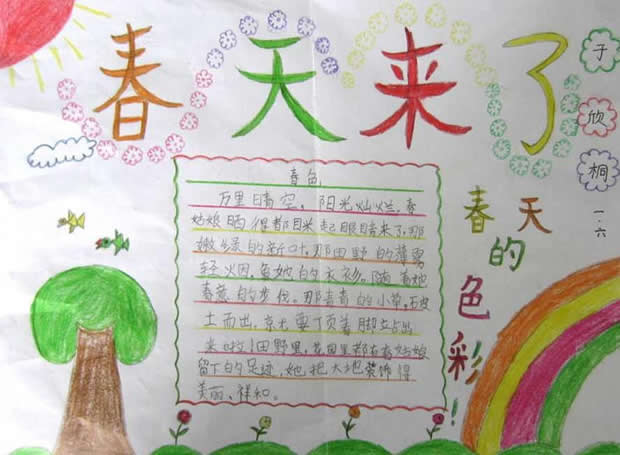 春天来了
于欣桐
一.六
春天的色彩!
春色
万里晴空,阳光灿烂,春
姑娘晒得都眯起眼睛来了,那
嫩绿的新叶,那田野的薄雾
轻烟,是她的衣衫,随着她
春意的步伐。那青青的小草,破
土而出,竞先要丁页着脚立占出
来啦!田野里,花园里都有春姑娘
留下的足迹,她把大地装饰得
美丽、祥和。